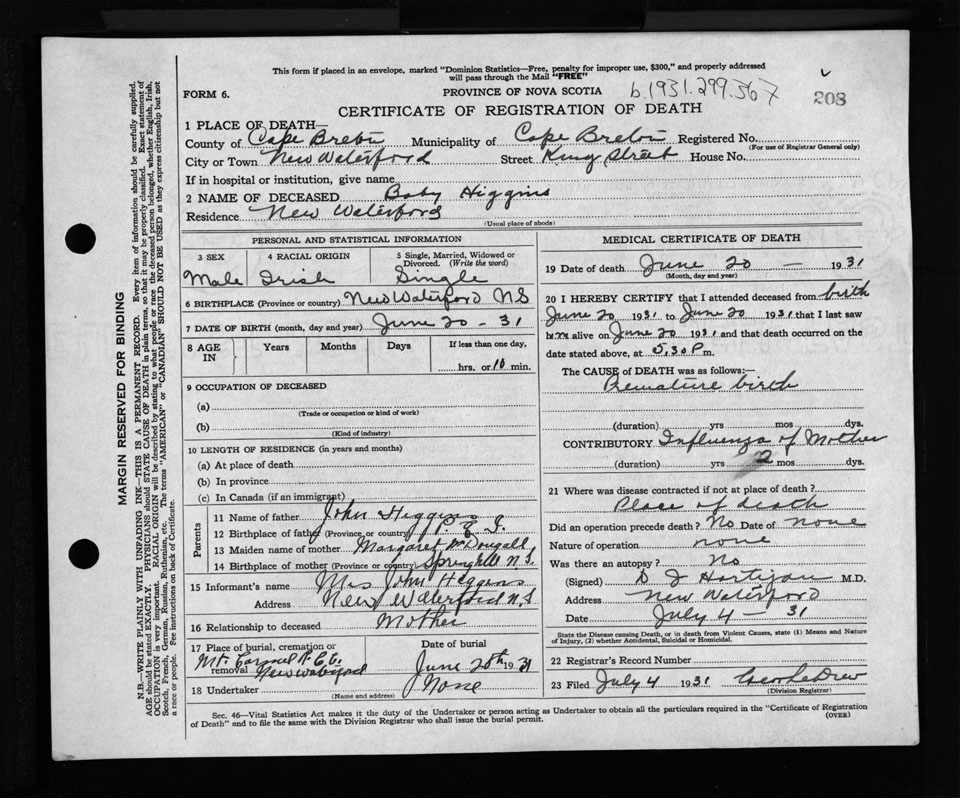 This form if placed in an envelope, marked "Dominion Statistics—Free, penalty for improper use, $300," and properly addressed
will pass through the Mail "FREE"
FORM 6.
PROVINCE OF NOVA SCOTIA
b.1931.299.367
208
CERTIFICATE OF REGISTRATION OF DEATH
1 PLACE OF DEATH—
County of Cape Breton Municipality of Cape Breton Registered No.
(For use of Registrar General only)
City or Town New Waterford Street King Street House No.
If in hospital or institution, give name
2 NAME OF DECEASED Baby Higgins
Residence New Waterford
(Usual place of abode)
PERSONAL AND STATISTICAL INFORMATION
3 SEX 4 RACIAL ORIGIN 5 Single, Married, Widowed or
Divorced. (Write the word)
Male Irish Single
6 BIRTHPLACE (Province or country) New Waterford NS
7 DATE OF BIRTH (month, day and year) June 20 - 31
8 AGE IN Years Months Days If less than one day,
hrs. or 10 min.
9 OCCUPATION OF DECEASED
(a)
(Trade or occupation or kind of work)
(b)
(Kind of industry)
10 LENGTH OF RESIDENCE (in years and months)
(a) At place of death
(b) In province
(c) In Canada (if an immigrant)
Parents
11 Name of father John Higgins
12 Birthplace of father (Province or country) P. E. I.
13 Maiden name of mother Margaret McDougall
14 Birthplace of mother (Province or country) Springhill N.S.
15 Informant's name Mrs John Higgins
Address New Waterford N.S
16 Relationship to deceased Mother
17 Place of burial, cremation or
removal Mt. Carmel R.C.C.
New Waterford
Date of burial
June 20th 1931
18 Undertaker None
(Name and address)
MEDICAL CERTIFICATE OF DEATH
19 Date of death June 20 — 1931
(Month, day and year)
20 I HEREBY CERTIFY that I attended deceased from birth
June 20 1931 to June 20 1931 that I last saw
him alive on June 20 1931 and that death occurred on the
date stated above, at 5.30 P m.
The CAUSE of DEATH was as follows:—
Premature birth
(duration) yrs mos dys.
CONTRIBUTORY Influenza of Mother
(duration) yrs 2 mos dys.
21 Where was disease contracted if not at place of death?
Place of death
Did an operation precede death? No Date of none
Nature of operation none
Was there an autopsy? No
(Signed) D J Hartigan M.D.
Address New Waterford
Date July 4 31
State the Disease causing Death, or in death from Violent Causes, state (1) Means and Nature
of Injury, (2) whether Accidental, Suicidal or Homicidal.
22 Registrar's Record Number
23 Filed July 4 1931
(Division Registrar)
Sec. 46—Vital Statistics Act makes it the duty of the Undertaker or person acting as Undertaker to obtain all the particulars required in the "Certificate of Registration
of Death" and to file the same with the Division Registrar who shall issue the burial permit.
(OVER)
MARGIN RESERVED FOR BINDING
N.B.—WRITE PLAINLY WITH UNFADING INK—THIS IS A PERMANENT RECORD. Every item of information should be carefully supplied.
AGE should be stated EXACTLY. PHYSICIANS should STATE CAUSE OF DEATH in plain terms, so that it may be properly classified. Exact statement of
OCCUPATION is very important. RACIAL ORIGIN will be described by stating to what people or race the deceased person belonged, whether English, Irish,
Scotch, French, German, Russian, Ruthenian, etc. The terms "AMERICAN" or "CANADIAN" SHOULD NOT BE USED as they express citizenship but not
a race or people. See instructions on back of Certificate.